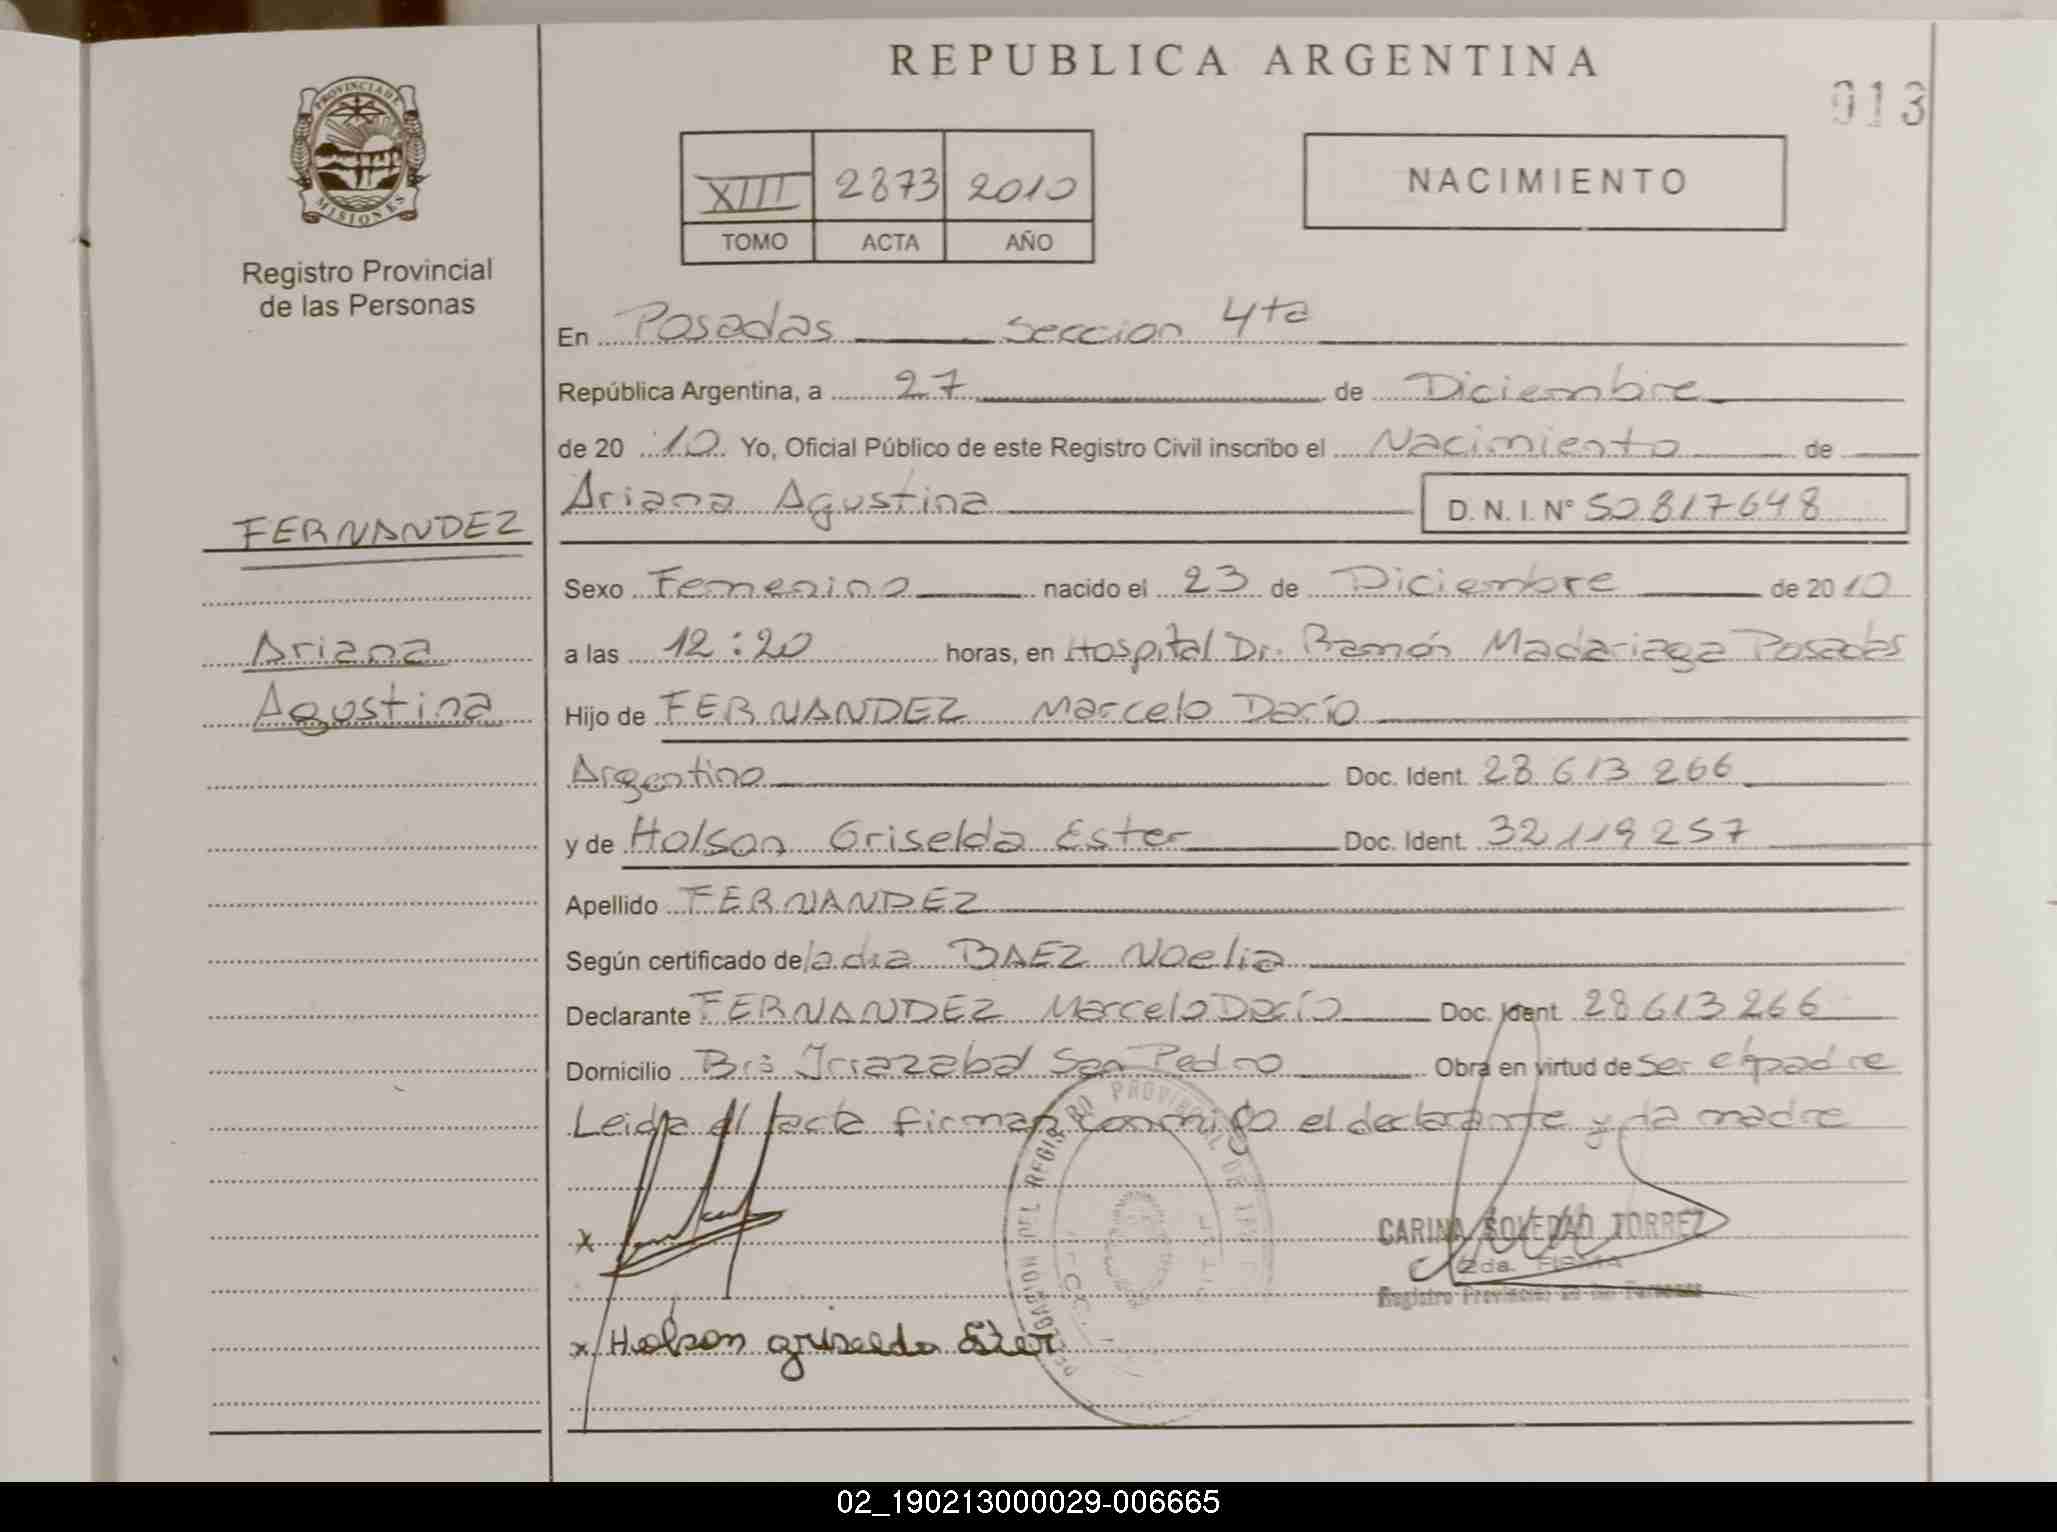 REPUBLICA ARGENTINA
013
PROVINCIA DE
MISIONES
Registro Provincial
de las Personas
XIII 2873 2010
TOMO ACTA AÑO
NACIMIENTO
En Posadas seccion 4ta
República Argentina, a 27 de Diciembre
de 20 10 Yo, Oficial Público de este Registro Civil inscribo el Nacimiento de
Ariana Agustina D. N. I. N° 50817648
FERNANDEZ
Ariana
Agustina
Sexo Femenino nacido el 23 de Diciembre de 20 10
a las 12:20 horas, en Hospital Dr. Ramón Madariaga Posadas
Hijo de FERNANDEZ Marcelo Darío
Argentino Doc. Ident. 28 613 266
y de Holson Griselda Ester Doc. Ident. 32 119 257
Apellido FERNANDEZ
Según certificado de la dra BAEZ Noelia
Declarante FERNANDEZ Marcelo Darío Doc. Ident. 28 613 266
Domicilio Brio Irrazabal San Pedro Obra en virtud de ser el padre
Leida el acta firman conmigo el declarante y la madre
DELEGACION DEL REGISTRO PROVINCIAL DE
CARINA SOLEDAD TORREZ
2da. FIRMA
Registro Provincial de las Personas
x
x Holson griselda Ester
02_190213000029-006665